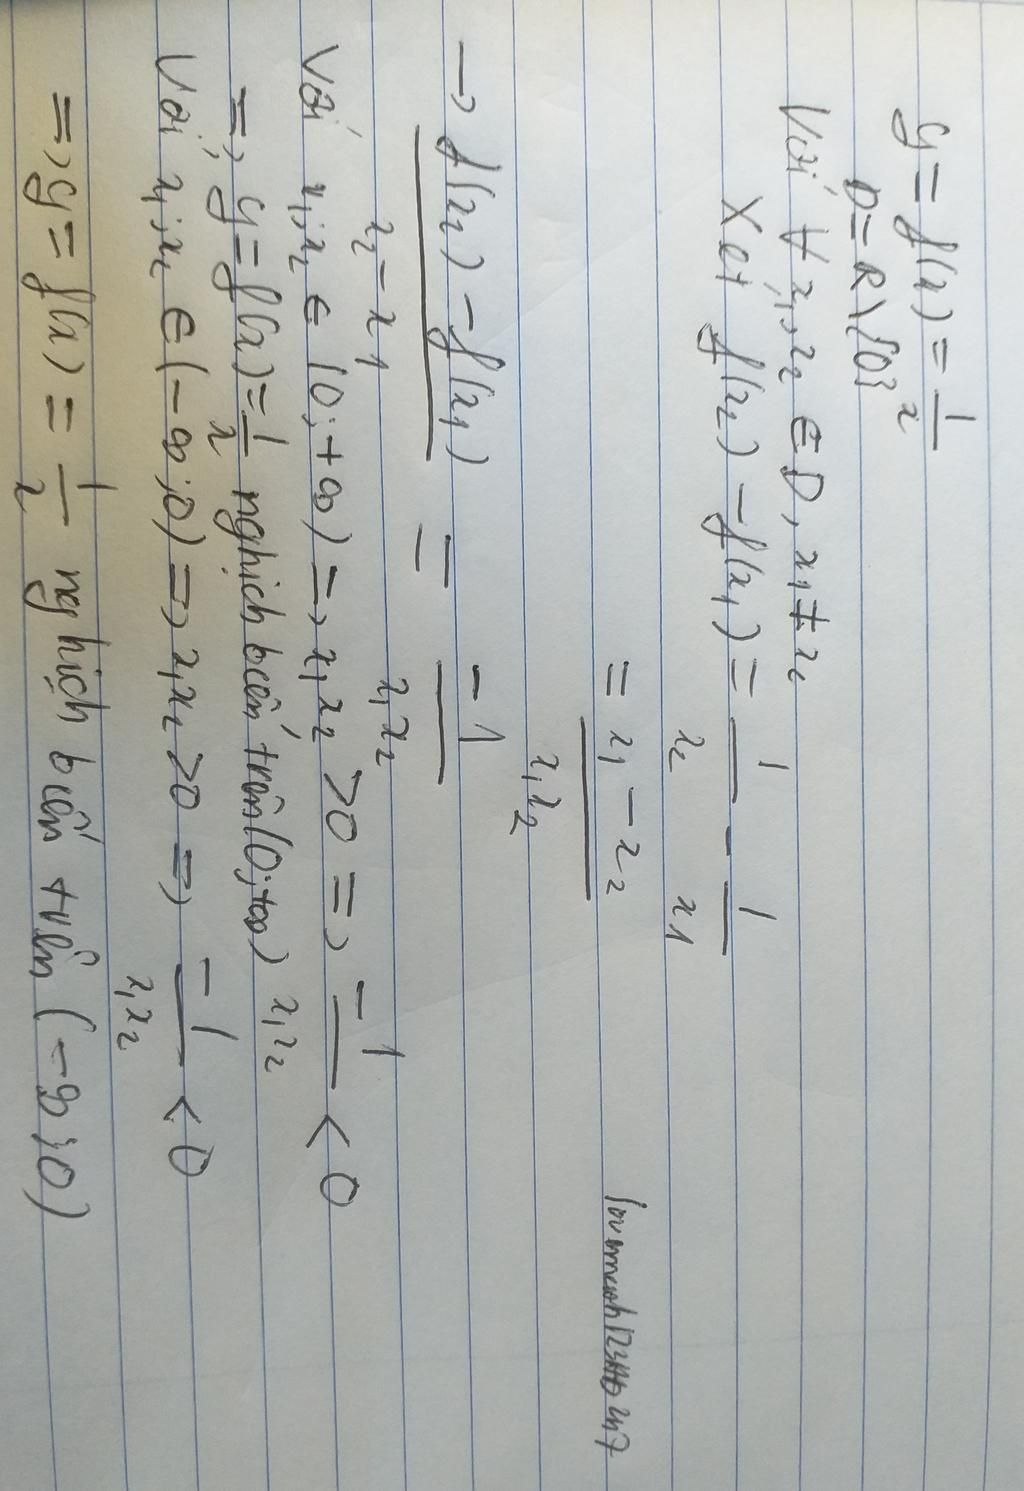 y = f(x) = 1/x
D = R\{0}
Với ∀ x₁, x₂ ∈ D, x₁ ≠ x₂
Xét f(x₂) - f(x₁) = 1/x₂ - 1/x₁
= x₁ - x₂ / x₁x₂
→ f(x₂) - f(x₁) / x₂ - x₁ = -1 / x₁x₂
Với x₁; x₂ ∈ (0; +∞) => x₁x₂ > 0 => -1/x₁x₂ < 0
=> y = f(x) = 1/x nghịch biến trên (0; +∞)
Với x₁; x₂ ∈ (-∞; 0) => x₁x₂ > 0 => -1/x₁x₂ < 0
=> y = f(x) = 1/x nghịch biến trên (-∞; 0)